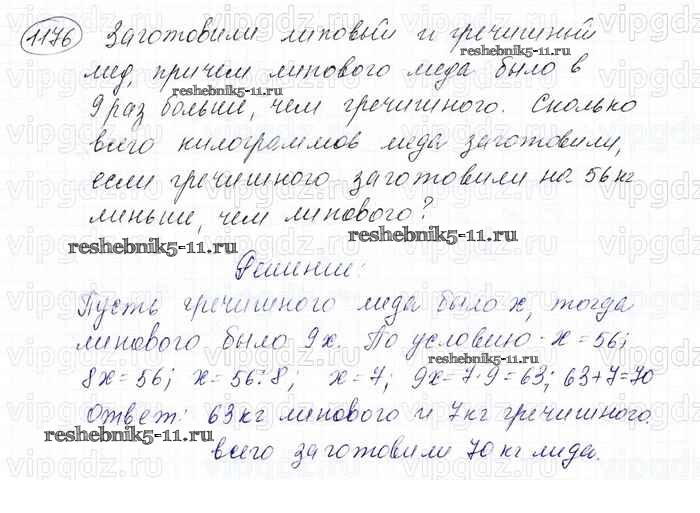 1176 Заготовили липовый и гречишный
reshebnik5-11.ru
мед, причем липового меда было в
reshebnik5-11.ru
9 раз больше, чем гречишного. Сколько
всего килограммов меда заготовили,
если гречишного заготовили на 56 кг
меньше, чем липового?
reshebnik5-11.ru
reshebnik5-11.ru
Решение:
Пусть гречишного меда было x, тогда
липового было 9x. По условию - x = 56;
reshebnik5-11.ru
8x = 56; x = 56:8; x = 7; 9x = 7·9 = 63; 63+7=70
Ответ: 63 кг липового и 7 кг гречишного.
reshebnik5-11.ru
всего заготовили 70 кг меда.